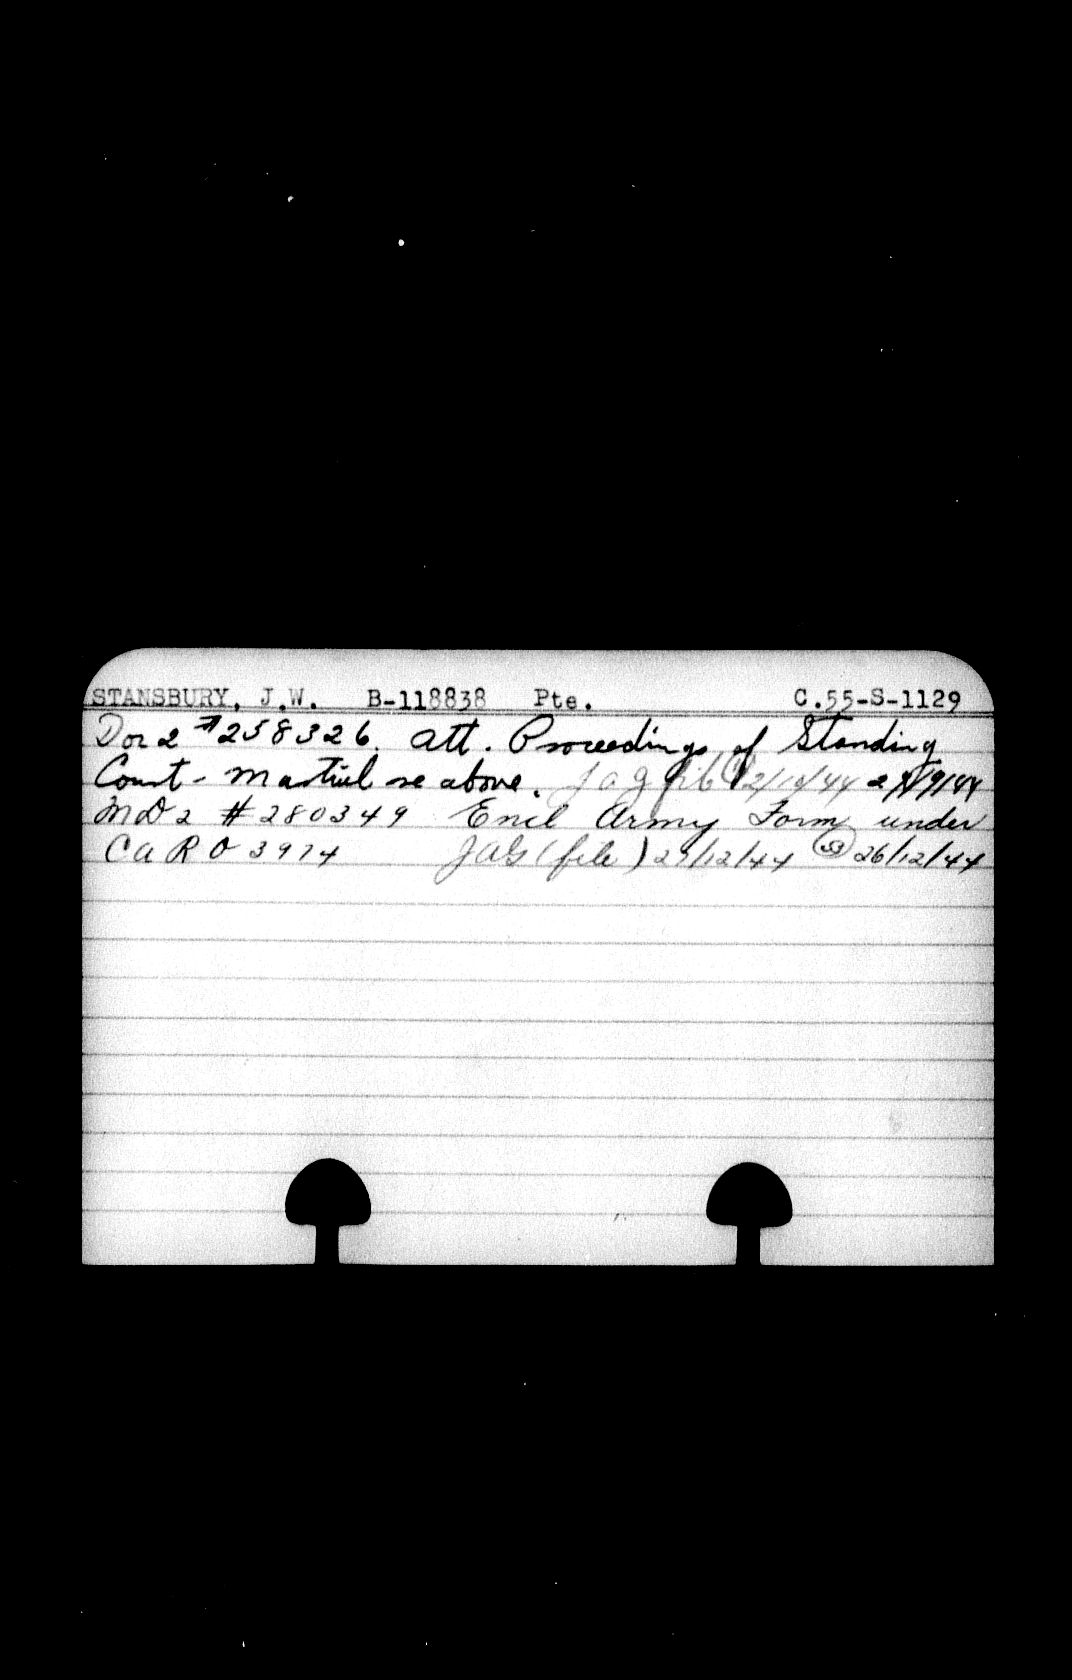 STANSBURY, J.W. B-118838 Pte. C.55-S-1129
#258326. att. Proceedings of Standing
Court-Martial re above. Jag 2/10/44
MD 2 #280349 Encl Army Form under
CARO 3974 JAG (file) 27/12/44 26/12/44